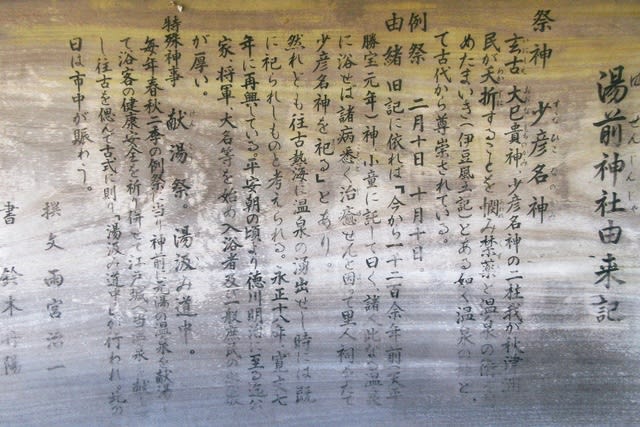 湯前神社由来記
祭神 少彦名神
玄古 大已貴神、少彦名神の二柱我が秋津
民が夭折することを憫み禁薬と温泉の術
めたまいき(伊豆風土記)とある如く温泉の
て古代から尊崇されている。
例祭 二月十日 十月十日。
由緒 旧記に依れば『今から一千二百余年前(天平
勝宝元年)神、小童に託して曰く、諸
に浴せば諸病悉く治癒せんと因て里人祠をたて
少彦名神を祀る』とあり。
然れども往古熱海に温泉の湧出せし時には既
に祀られしものと考えられる。永正十八年、寛文七
年に再興している平安朝の頃より徳川明治に至る迄公
家、将軍、大名等を始め入浴者及一般庶民の
が厚い。
特殊神事 献湯祭。湯汲み道中。
毎年春秋二季の例祭に当り神前に元湯の温泉を献湯
て浴客の健康安全を祈り併せて江戸城へ当温泉を献
し往古を偲んで古式に則り「湯汲み道中」が行われ、此の
日は市中が賑わう。
撰文 雨宮治一
書 鈴木